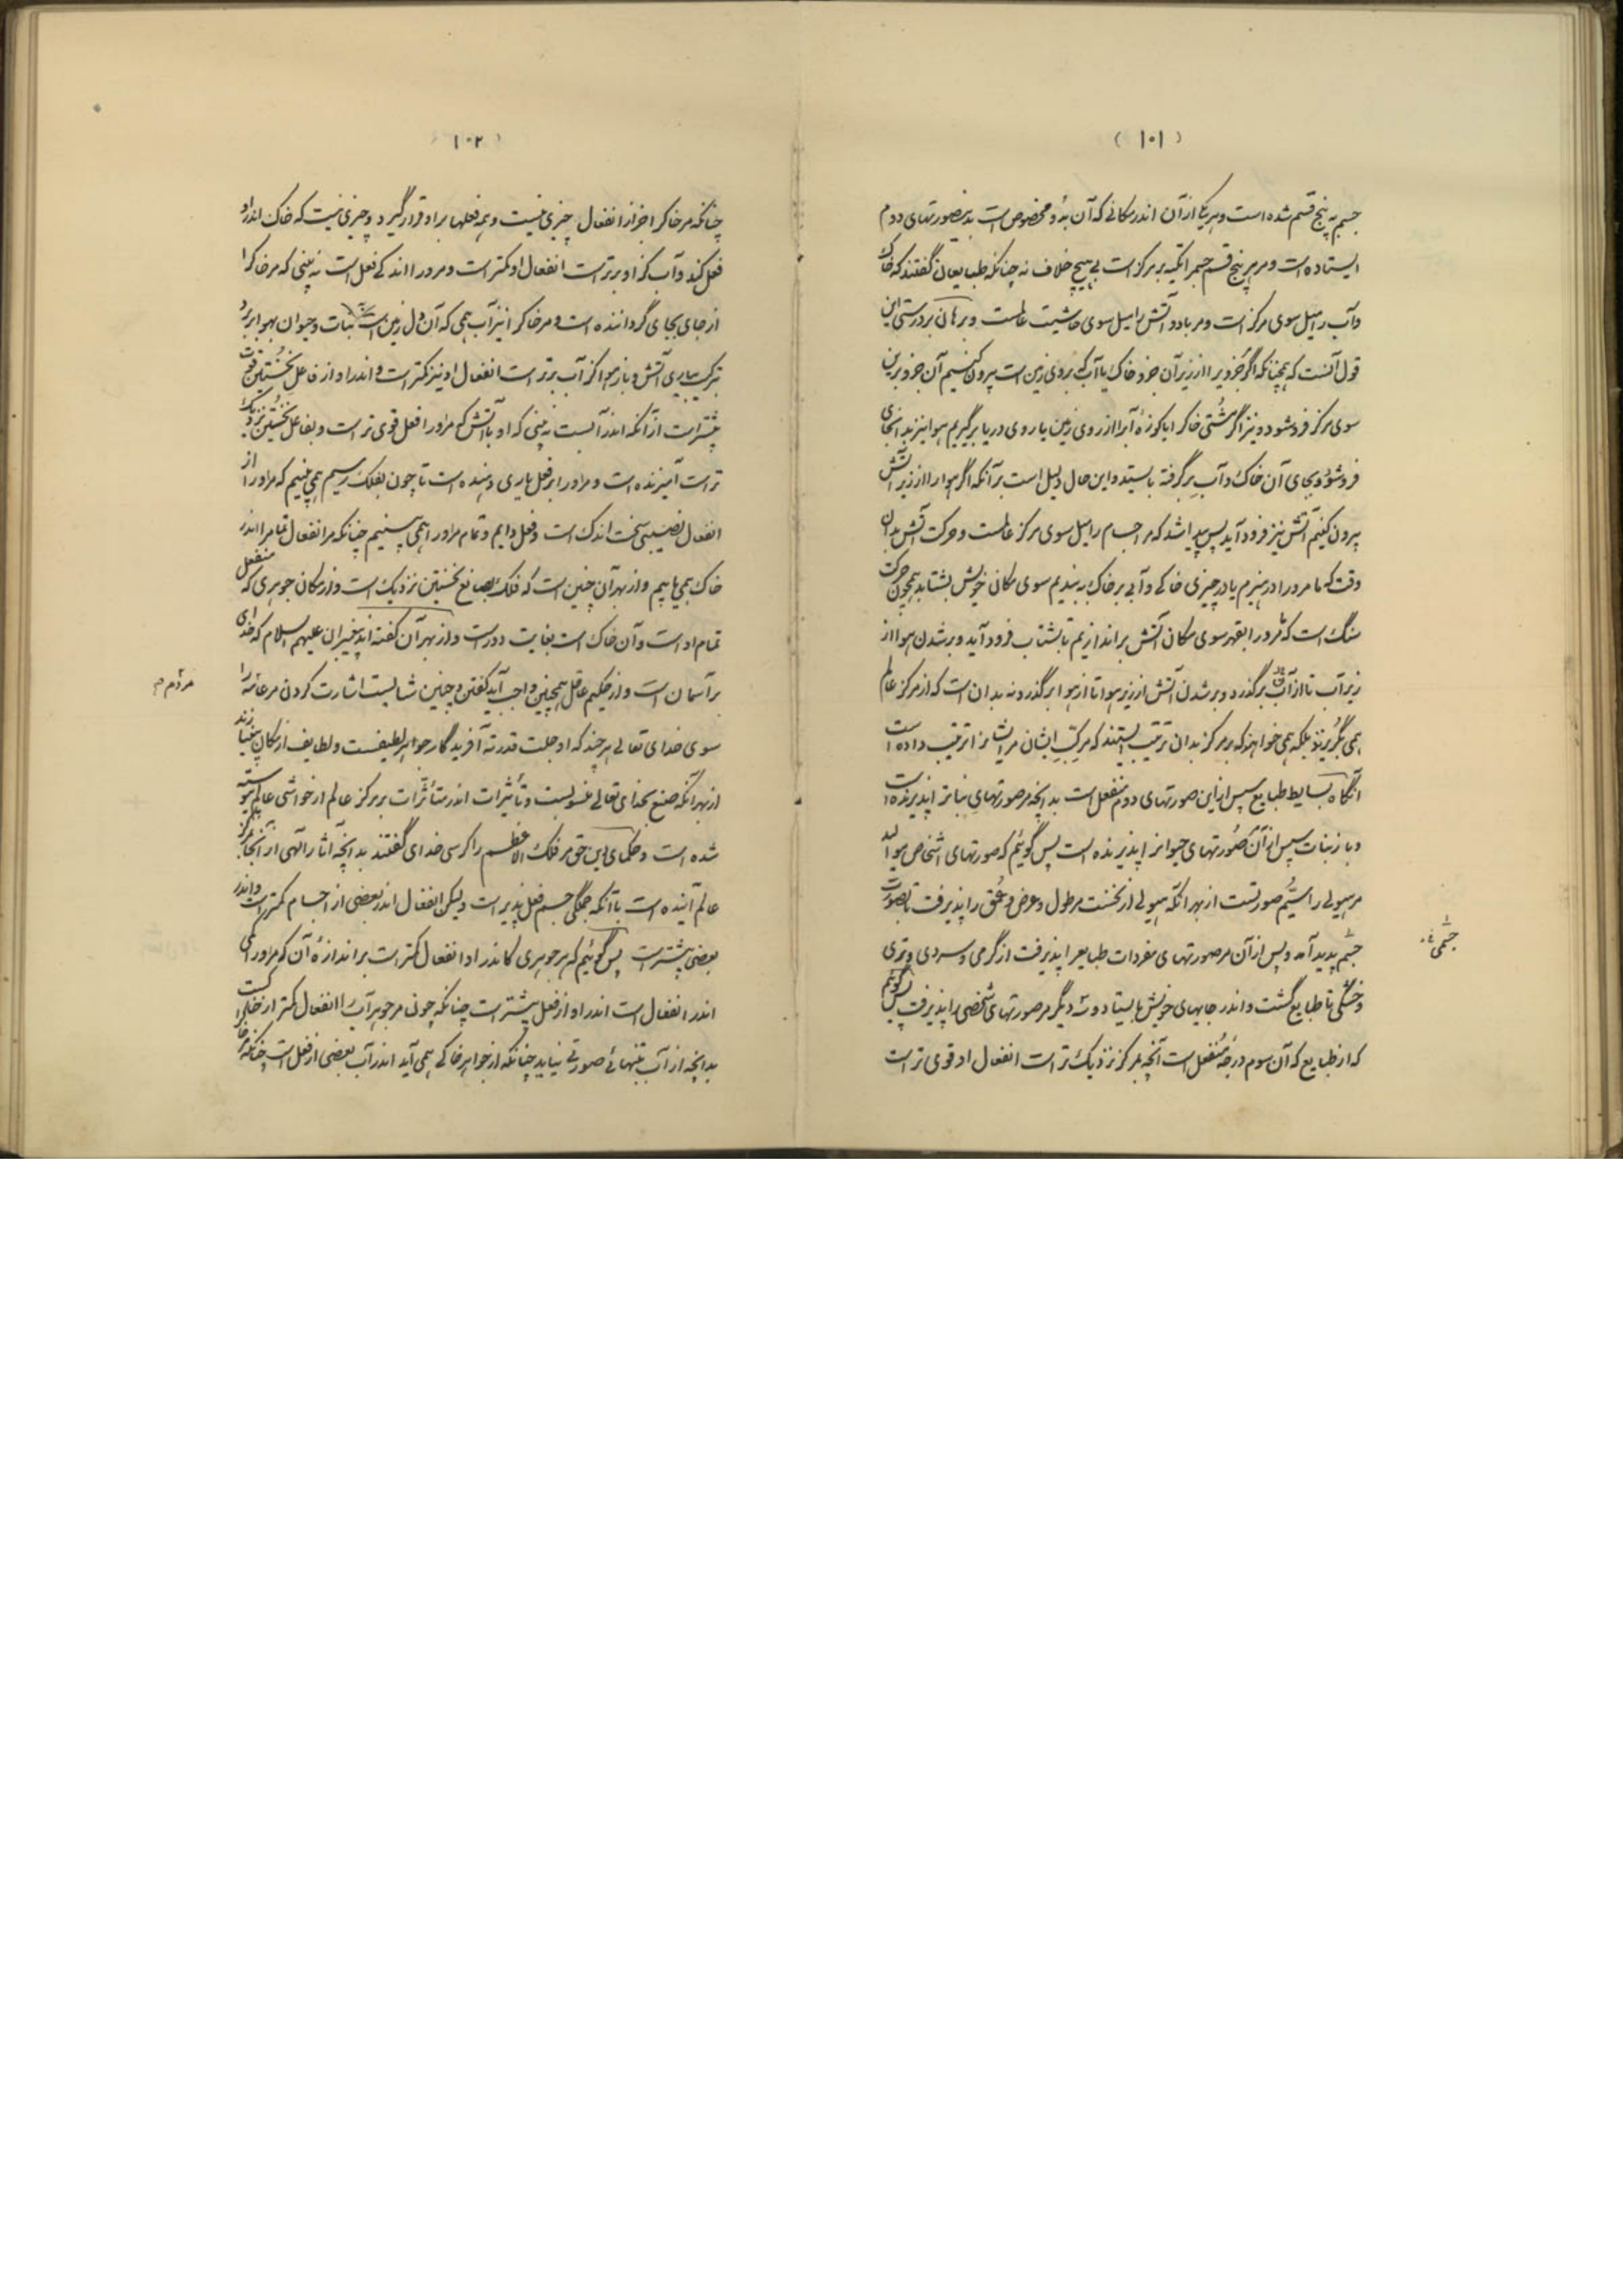 (١٠١)
جسم به پنج قسم شده است و هر یکی از آن اندر مکانی که آن بدو مخصوص است بدین صورتهای دوم
ایستاده است و مر هر پنج قسم جسم را تکیه بر مرکز است بی هیچ خلاف نه چنانکه طبایعیان گفتند که خاک
و آب را میل سوی مرکز است و مر باد و آتش را میل سوی حاشیت عالمست و برهان بر درستی این
قول آنست که همچنانکه اگر جزویرا از زیر آن جزو خاک یا آب که بروی زمین است بیرون کنیم آن جزو برین
سوی مرکز فرو شود و نیز اگر مشتی خاکرا یا کوزۀ آبرا از روی زمین یا روی دریا برگیریم هوا نیز بدانجای
فرو شود و بجای آن خاک و آب بر گرفته بایستد و این حال دلیل است بر آنکه اگر هوا را از زیر آتش
بیرون کنیم آتش نیز فرود آید پس پیدا شد که مر اجسام را میل سوی مرکز عالمست و حرکت آتش بدان
وقت که ما مرورا در هیزم یا در چیزی خاکی و آبی بر خاک به بندیم سوی مکان خویش بشتابد همچون حرکت
سنگ است که مرورا بقهر سوی مکان آتش بر اندازیم تا بشتاب فرود آید و بر شدن هوا از
زیر آب تا از آب برگذرد و بر شدن آتش از زیر هوا تا از هوا برگذرد نه بدان است که از مرکز عالم
همی بگریزند بلکه همی خواهند که بر مرکز بدان ترتیب بایستند که مرکّبِ ایشان مر ایشانرا ترتیب داده است
آنگاه بسایط طبایع سپس از این صورتهای دوم منفعل است بدانچه مر صورتهای نباترا پذیرنده است
و باز نبات سپس از آن صُورتهای حیوانرا پذیرنده است پس گوئیم که صورتهای اشخاص موالید
مر هیولی را سیُّم صورتست از بهر آنکه هیولی از نخست مر طول و عرض و عُمق را پذیرفت تا بصورت
جسم پدید آمد و پس از آن مر صورتهای مفردات طبایعرا پذیرفت از گرمی و سردی و تری
جسمی خ
و خشکی تا طبایع گشت و اندر جایهای خویش بایستاد و سه دیگر مر صورتهای شخصی را پذیرفت پس گوئیم
که از طبایع که آن سوم درجۀ مُنفعل است آنچه بمرکز نزدیک تر است انفعال او قوی تر است
(١٠٢)
چنانکه مر خاکرا جز از انفعال چیزی نیست و همه فعلها بر او قرار گیرد و چیزی نیست که خاک اندرو
فعل کند و آب کز او برتر است انفعال او کمتر است و مرورا اندکی فعل است نه بینی که مر خاکرا
از جای بجای گرداننده است و مر خاکرا نیز آب همی که آن دل زمین است نبات و حیوان بهوا بر برد
ترکیب بیاری آتش و باز هوا کز آب برتر است انفعال او نیز کمتر است و اندر او از فاعل نُخستین قوت
بیشتر است از آنکه اندر آبست نه بینی که او با آتش که مرورا فعل قوی تر است و بفاعل نخستین نزدیک
تر است آمیزنده است و مراورا بر فعل یاری دهنده است تا چون بفلک رسیم همی بینیم که مراورا از
انفعال نصیبی سخت اندک است و فعل دایم و تمام مراورا همی بینیم چنانکه مر انفعال تمامرا اندر
خاک همی یابیم و از بهر آن چنین است که فلک بصانع نخستین نزدیک است و از مکان جوهری که منفعل
تمام او است و آن خاک است بغایت دور است و از بهر آن گفته اند پیغمبران علیهم السلام که خدای
بر آسمان است و از حکیم عاقل همچنین واجب آید گفتن و چنین شایست اشارت کردن مر عامّه را
مردم م
سوی خدای تعالی هر چند که او جلت قدرته آفریدگار جواهر لطیفست و لطایف از مکان بی نیازند
از بهر آنکه صنع بخدای تعالی منسوبست و تأثیرات اندر متأثّرات بر مرکز عالم از حواشی عالم پیوسته
شده است و حکمای دین حق مر فلک الاعظم را کرسی خدای گفتند بدانچه آثار الهی از آنجا بمرکز
عالم آینده است با آنکه جملگی جسم فعل پذیر است ولیکن انفعال اندر بعضی از اجسام کمتر است و اندر
بعضی بیشتر است پس گوئیم که هر جوهری کاندر او انفعال کمتر است بر اندازۀ آن کو مراورا کمی
اندر انفعال است اندر او از فعل بیشتر است چنانکه چون مر جوهر آب را انفعال کمتر از خاکست
بدانچه از آب بتنهائی صورتی نیاید چنانکه از جواهر خاکی همی آید اندر آب بعضی از فعل است چنانکه مر خاکرا